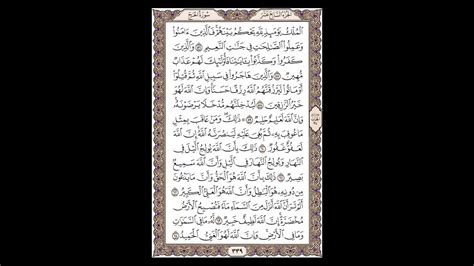 الجزء السابع عشر
سورة الحج
الْمُلْكُ يَوْمَئِذٍ لِلَّهِ يَحْكُمُ بَيْنَهُمْ فَالَّذِينَ ءَامَنُوا
وَعَمِلُوا الصَّلِحَتِ فِي جَنَّتِ النَّعِيمِ ۝ وَالَّذِينَ
كَفَرُوا وَكَذَّبُوا بِـَٔايَتِنَا فَأُولَئِكَ لَهُمْ عَذَابٌ
مُهِينٌ ۝ وَالَّذِينَ هَاجَرُوا فِي سَبِيلِ اللَّهِ ثُمَّ قُتِلُوا
أَوْ مَاتُوا لَيَرْزُقَنَّهُمُ اللَّهُ رِزْقًا حَسَنًا وَإِنَّ اللَّهَ لَهُوَ
خَيْرُ الرَّزِقِينَ ۝ لَيُدْخِلَنَّهُم مُّدْخَلًا يَرْضَوْنَهُ
وَإِنَّ اللَّهَ لَعَلِيمٌ حَلِيمٌ ۝ ذَلِكَ وَمَنْ عَاقَبَ بِمِثْلِ
مَا عُوقِبَ بِهِ ثُمَّ بُغِيَ عَلَيْهِ لَيَنصُرَنَّهُ اللَّهُ إِنَّ اللَّهَ
لَعَفُوٌّ غَفُورٌ ۝ ذَلِكَ بِأَنَّ اللَّهَ يُولِجُ الَّيْلَ فِي
النَّهَارِ وَيُولِجُ النَّهَارَ فِي الَّيْلِ وَأَنَّ اللَّهَ سَمِيعٌ
بَصِيرٌ ۝ ذَلِكَ بِأَنَّ اللَّهَ هُوَ الْحَقُّ وَأَنَّ مَا يَدْعُونَ
مِن دُونِهِ هُوَ الْبَطِلُ وَأَنَّ اللَّهَ هُوَ الْعَلِيُّ الْكَبِيرُ
۝ أَلَمْ تَرَ أَنَّ اللَّهَ أَنزَلَ مِنَ السَّمَاءِ مَاءً فَتُصْبِحُ الْأَرْضُ
مُخْضَرَّةً إِنَّ اللَّهَ لَطِيفٌ خَبِيرٌ ۝ لَهُ مَا فِي السَّمَوَتِ
وَمَا فِي الْأَرْضِ وَإِنَّ اللَّهَ لَهُوَ الْغَنِيُّ الْحَمِيدُ ۝
٣٣٩